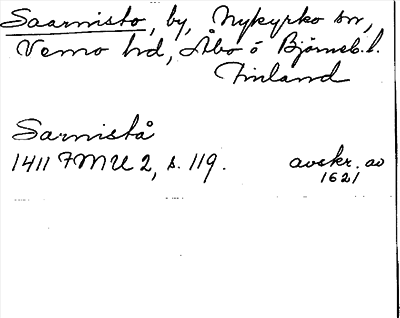 Saarnisto, by, Nykyrko sn,
Vemo hd, Åbo o Björneb. l.
Finland
Sarnistå
1411 FMU 2, s. 119. avskr. av
1621